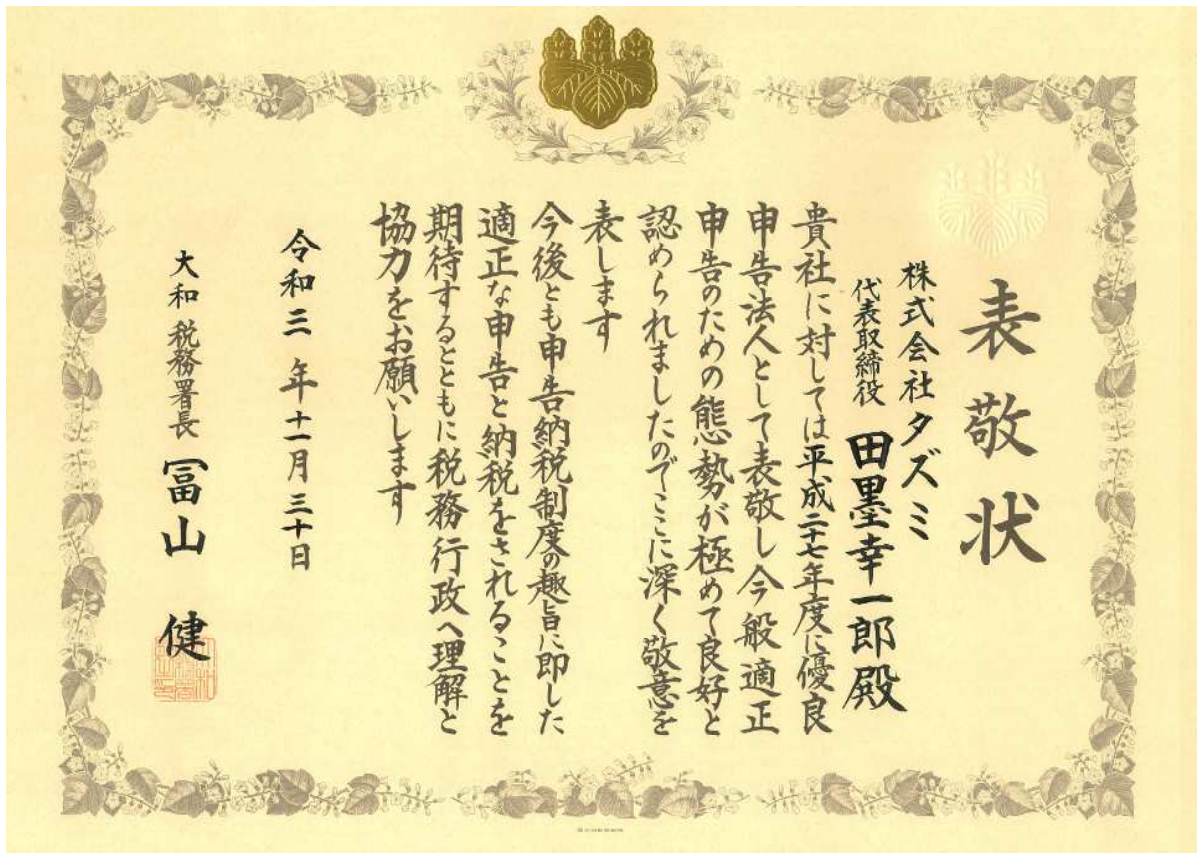 表敬状
株式会社タズミ
代表取締役 田墨幸一郎殿
貴社に対しては平成二十七年度に優良
申告法人として表敬し今般適正
申告のための態勢が極めて良好と
認められましたのでここに深く敬意を
表します
今後とも申告納税制度の趣旨に即した
適正な申告と納税をされることを
期待するとともに税務行政へ理解と
協力をお願いします
令和三年十一月三十日
大和税務署長 冨山 健